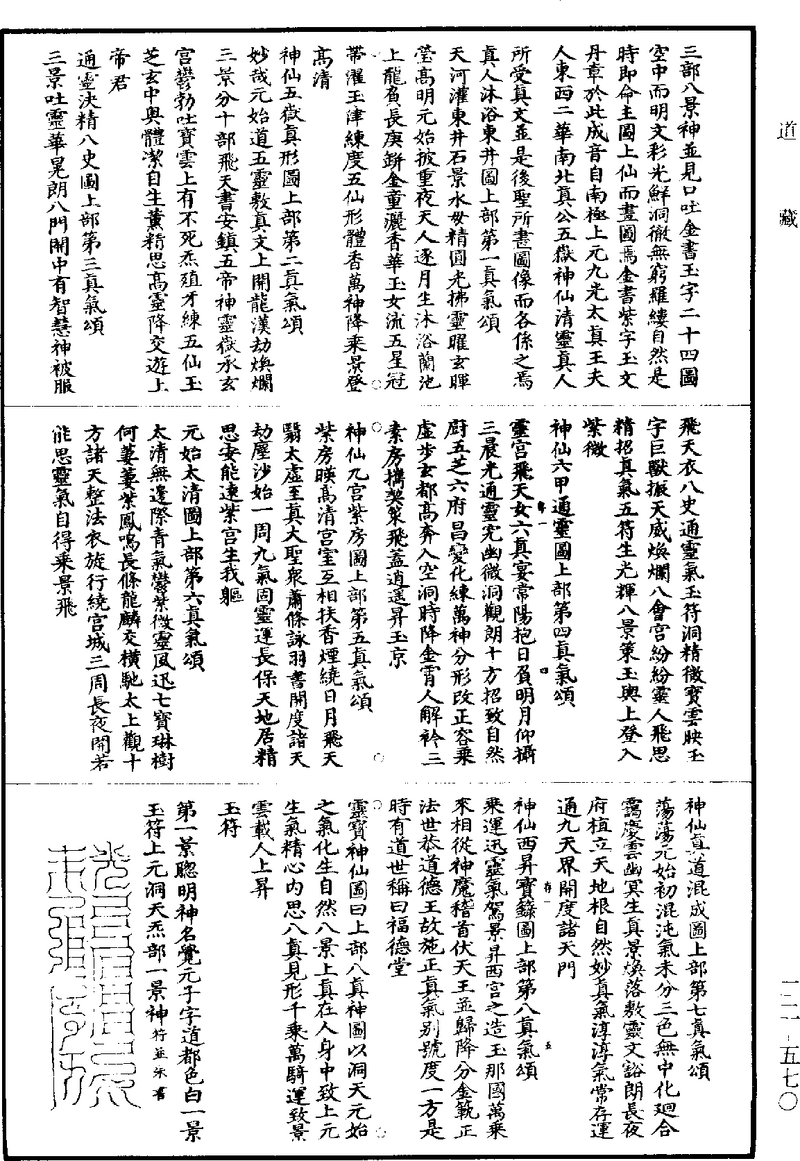 道藏
三部八景神並見口吐金書玉字二十四圖
空中而明文彩光鮮洞徹無窮羅縷自然是
時即命主圖上仙而畫圖焉金書紫字玉文
丹章於此成音自南極上元九光太真王夫
人東西二華南北真公五嶽神仙清靈真人
所受真文並是後聖所畫圖像而各係之焉
真人沐浴東井圖上部第一真氣頌
天河灌東井石景水母精圓光拂靈曜玄暉
瑩高明元始披重夜天人逐月生沐浴蘭池
上龍負長庚鉼金童灑香華玉女流五星冠
帶濯玉津練度五仙形體香萬神降乘景登
高清
神仙五嶽真形圖上部第二真氣頌
妙哉元始道五靈敷真文上開龍漢劫煥爛
三景分十部飛天書安鎮五帝神靈嶽承玄
宮鬱勃吐寶雲上有不死炁殖牙練五仙玉
芝玄中奧體潔自生薰精思高靈降交遊上
帝君
通靈決精八史圖上部第三真氣頌
三景吐靈華晃朗八門開中有智慧神被服
飛天衣八史通靈氣玉符洞精微寶雲映玉
字巨獸振天威煥爛八會宮紛紛靈人飛思
精招真氣五符生光輝八景策玉輿上登入
紫微
神仙六甲通靈圖上部第四真氣頌
靈宮飛天女六真宴常陽抱日負明月仰攝
三晨光通靈究幽微洞觀朗十方招致自然
廚五芝六府昌變化練萬神分形改正容乘
虛步玄都高奔入空洞時降金霄人解衿三
素房攜契策飛蓋逍遥昇玉京
神仙九宮紫房圖上部第五真氣頌
紫房暎高清宮室互相扶香煙繞日月飛天
翳太虛至真大聖衆蕭條詠羽書開度諸天
劫塵沙始一周九氣固靈運長保天地居精
思安能遠紫宮生我軀
元始太清圖上部第六真氣頌
太清無邊際青氣鬱紫微靈風迅七寶琳樹
何萋萋紫鳳鳴長條龍麟交橫馳太上觀十
方諸天整法衣旋行繞宮城三周長夜開若
能思靈氣自得乘景飛
神仙真道混成圖上部第七真氣頌
蕩蕩元始初混沌氣未分三色無中化廻合
靄慶雲幽冥生真景煥落敷靈文豁朗長夜
府植立天地根自然妙真氣淳淳氣常存運
通九天界開度諸天門
神仙西昇寶籙圖上部第八真氣頌
乘運迅靈氣駕景昇西宮之造玉那國萬乘
來相從神魔稽首伏天王並歸降分金範正
法世恭道德王故施正真氣别號度一方是
時有道世稱曰福德堂
靈寶神仙圖曰上部八真神圖以洞天元始
之氣化生自然八景上真在人身中致上元
生氣精心内思八真見形千乘萬騎運致景
雲載人上昇
玉符
第一景聰明神名覺元子字道都色白一景
玉符上元洞天炁部一景神符並朱書
一二一-五七〇